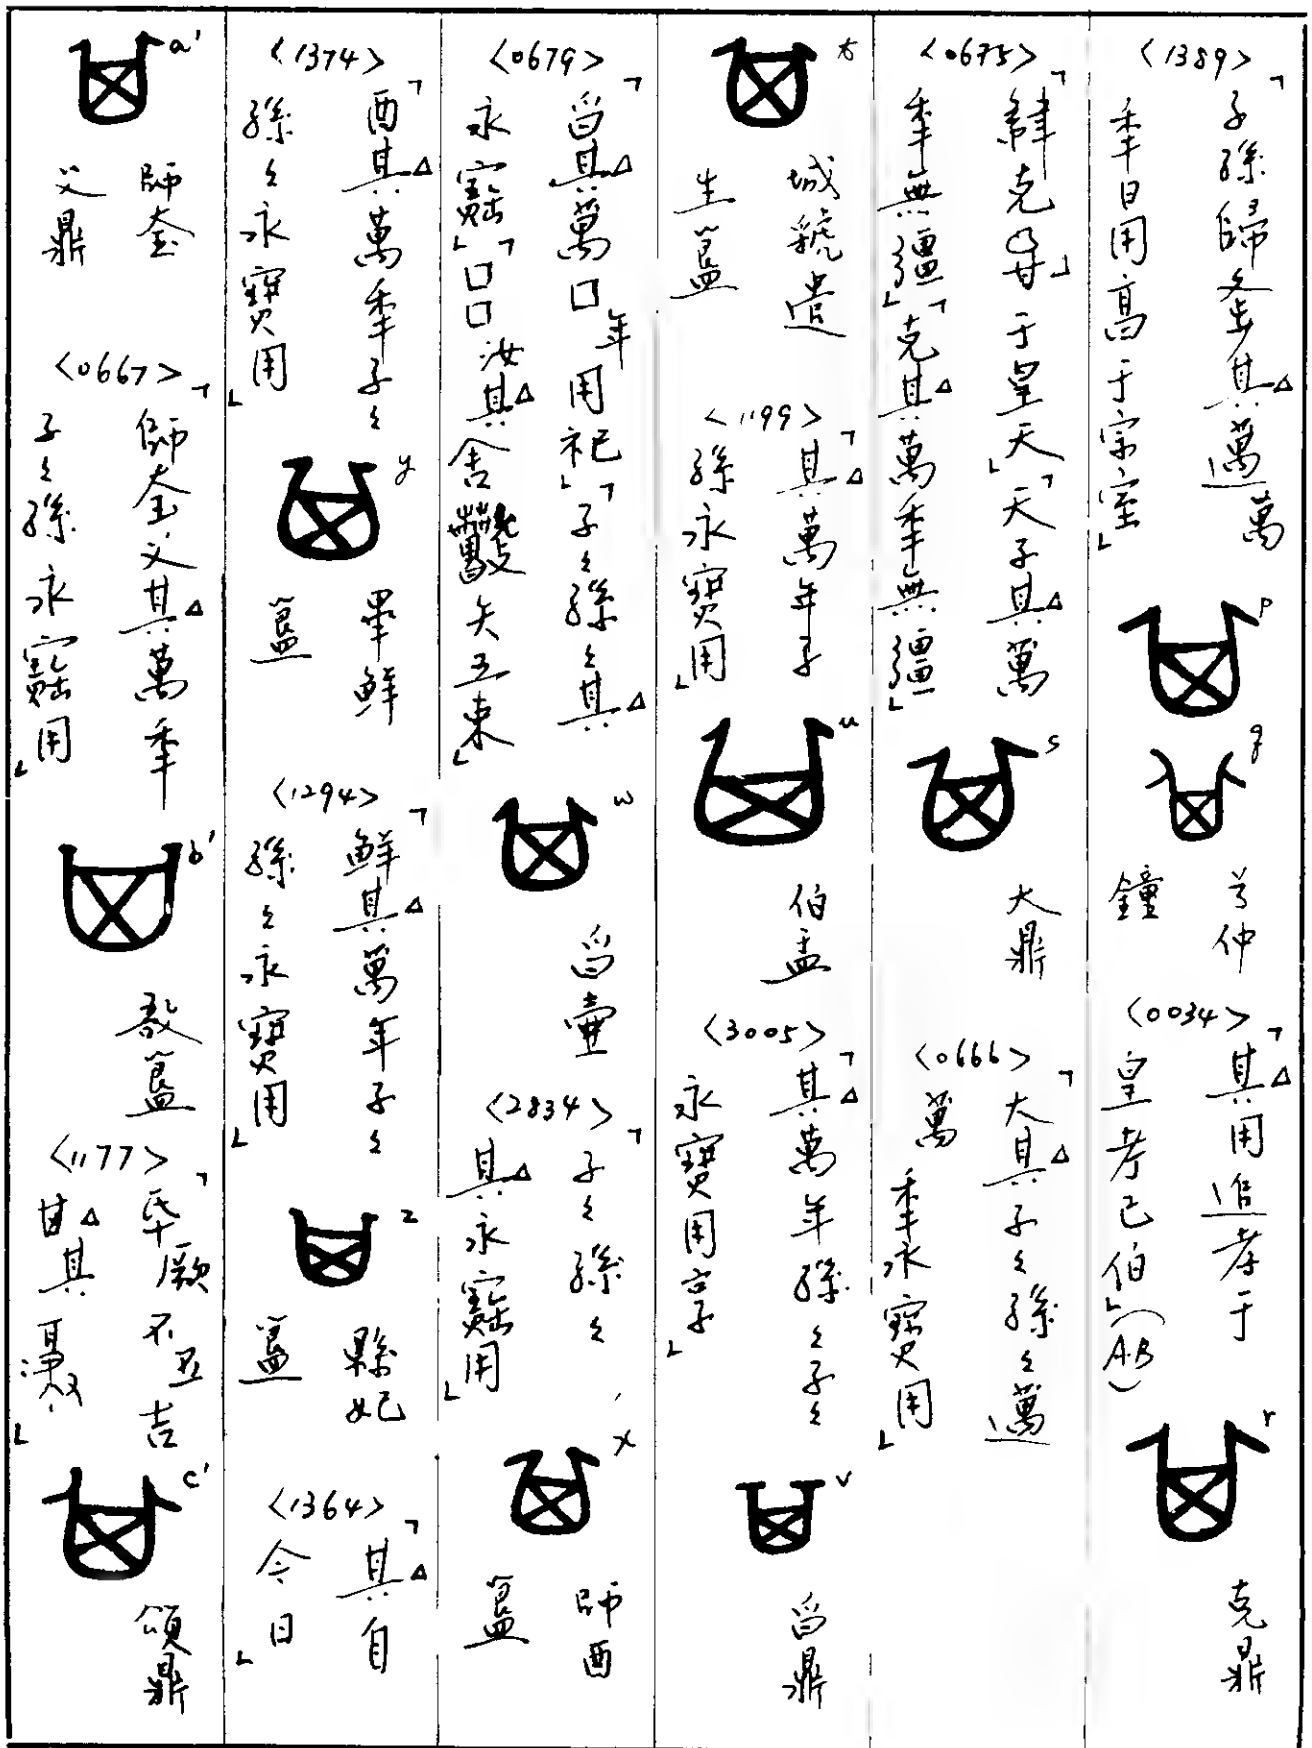 <1389>
「子孫歸夆其△邁萬
年日用享于宗室」
p
q
兮仲
鐘
<0034>
「其△用追孝于
皇考己伯」(A.B)
r
克鼎
<0675>
克 于皇天」「天子其△萬
年無疆」「克其△萬年無疆」
s
大鼎
<0666>
「大其△子〻孫〻邁
萬
年永寶用」
t
城虢遣
生簋
<1199>
「其△萬年子
孫永寶用」
u
伯盂
<3005>
「其△萬年孫〻子〻
永寶用享」
v
曶鼎
<0679>
「曶其△萬囗年用祀」「子〻孫〻其△
永寶」「囗囗汝其△舍 矢五束」
w
曶壷
<2834>
「子〻孫〻
其△永寶用」
x
師酉
簋
<1374>
「酉其△萬年子〻
孫〻永寶用」
y
畢鮮
簋
<1294>
「鮮其△萬年子〻
孫〻永寶用」
z
縣妃
簋
<1364>
「其△自
今日」
a'
師
父鼎
<0667>
「師 父其△萬年
子〻孫永寶用」
b'
簋
<1177>
「氒厥不丕吉
甘△其 」
c'
頌鼎